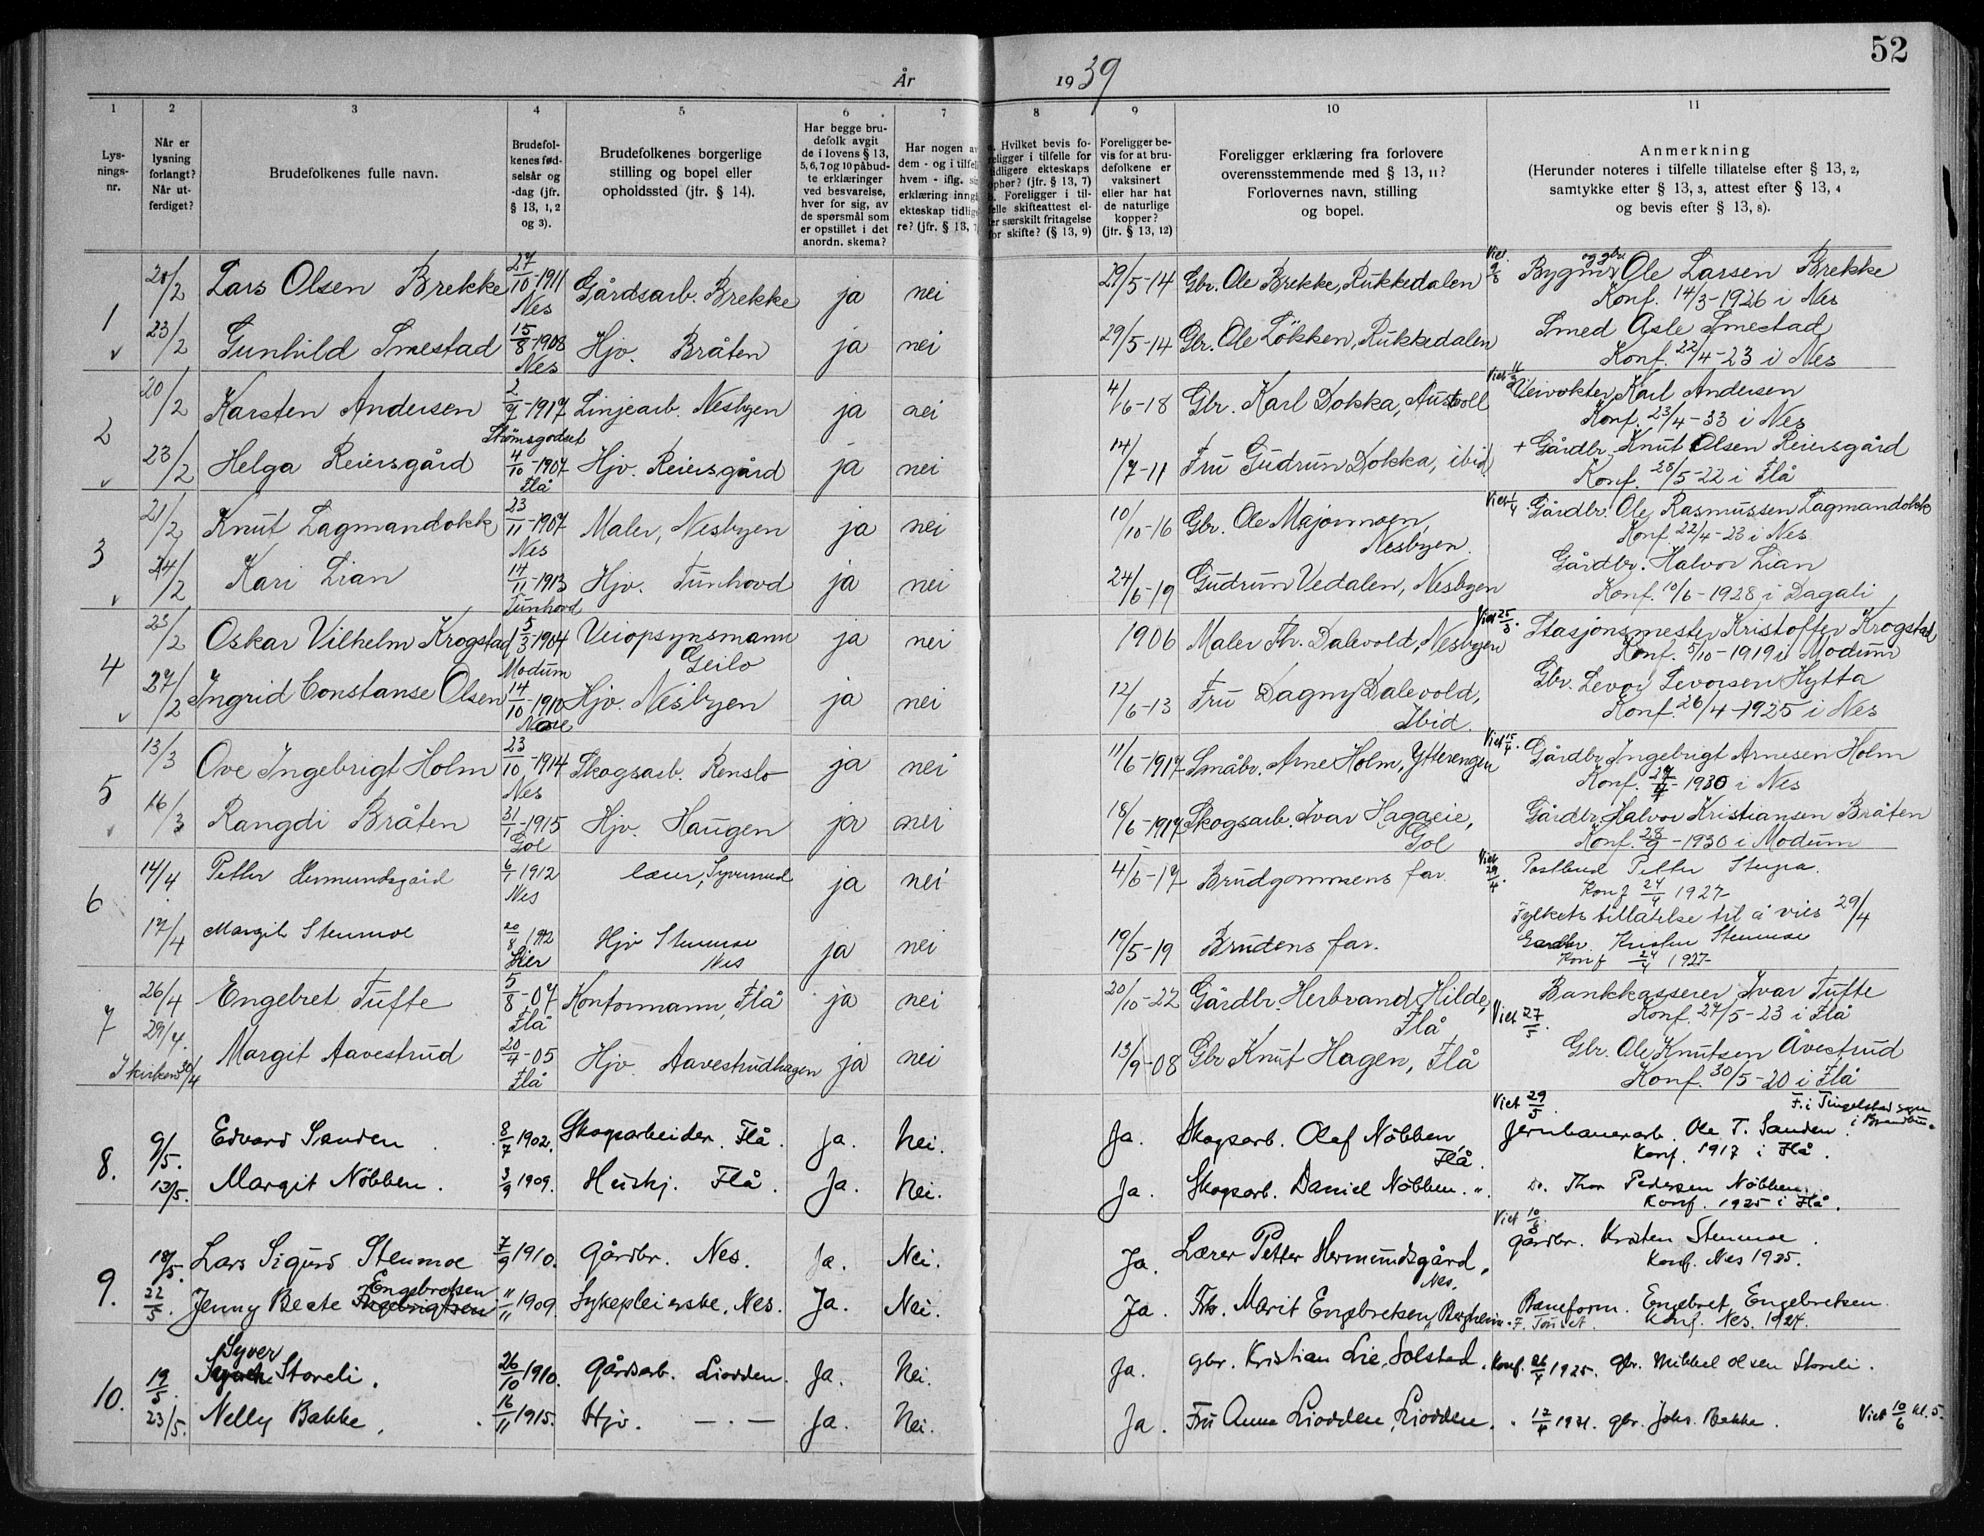 52
År 1939
1 2 3 4 5 6 7 8 9 10 11
Lys-
nings-
nr.
Når er
lysning
forlangt?
Når ut-
ferdiget?
Brudefolkenes fulle navn.
Brudefol-
kenes fød-
selsår og
-dag (jfr.
§ 13, 1, 2
og 3).
Brudefolkenes borgerlige
stilling og bopel eller
opholdssted (jfr. § 14).
Har begge bru-
defolk avgit
de i lovens § 13,
5, 6, 7 og 10 påbud-
te erklæringer
ved besvarelse,
hver for sig, av
de spørsmål som
er opstillet i det
anordn. skema?
Har nogen av
dem - og i tilfelle
hvem - iflg.
erklæring inngå
ekteskap tidlige
re? (jfr. § 13, 7
Hvilket bevis fo-
religger i tilfelle for
tidligere ekteskaps
ophør? (jfr. § 13, 7)
b. Foreligger i til-
felle skifteattest el-
ler særskilt fritagelse
for skifte? (§ 13, 9)
Foreligger be-
vis for at bru-
defolkene er
vaksinert
eller har hat
de naturlige
kopper?
(jfr. § 13, 12)
Foreligger erklæring fra forlovere
overensstemmende med § 13, 11?
Forlovernes navn, stilling
og bopel.
Anmerkning
(Herunder noteres i tilfelle tillatelse efter § 13, 2,
samtykke efter § 13, 3, attest efter § 13, 4
og bevis efter § 13, 8).
1 20/2 Lars Olsen Brekke 27/10-1911 Nes Gårdsarb. Brekke ja nei 29/5-14 Gbr. Ole Brekke, Rukkedalen Viet 9/3 Bygm. og gbr. Ole Larsen Brekke
Konf. 14/3-1926 i Nes
23/2 Gunhild Smestad 15/8-1908 Nes Hjv. Bråten ja nei 29/5-14 Gbr. Ole Løkken, Rukkedalen Smed Asle Smestad
Konf. 22/4-23 i Nes
2 20/2 Karsten Andersen 2/7-1917 Strømsgodset Linjearb. Nesbyen ja nei 4/6-18 Gbr. Karl Dokka, Austvoll Viet Veivokter Karl Andersen
Konf. 23/4-33 i Nes
23/2 Helga Reiersgård 4/10-1907 Flå Hjv. Reiersgård ja nei 14/7-11 Fru Gudrun Dokka, ibid + Gårdbr. Knut Olsen Reiersgård
Konf. 28/5-22 i Flå
3 21/2 Knut Lagmandokk 23/11-1907 Nes Maler, Nesbyen ja nei 10/10-16 Gbr. Ole Majormoen,
Nesbyen. Viet 1/4 Gårdbr. Ole Rasmussen Lagmandokk
Konf. 22/4-23 i Nes
24/2 Kari Lian 14/11-1913 Tunhovd Hjv. Tunhovd ja nei 24/6-19 Gudrun Vedalen, Nesbyen Gårdbr. Halvor Lian
Konf. 10/6-1928 i Dagali
4 23/2 Oskar Vilhelm Krogstad 5/3-1904 Modum Veiopsynsmann
Geilo ja nei 1906 Maler Th. Dalevold, Nesbyen Viet 25/3. Stasjonsmester Kristoffer Krogstad
Konf. 5/10-1919 i Modum
27/2 Ingrid Constanse Olsen 14/10-1910 Hjv. Nesbyen ja nei 12/6-13 Fru Dagny Dalevold,
Ibid. Gbr. Levor Levorsen Hytta
Konf. 26/4-1925 i Nes
5 13/3 Ove Ingebrigt Holm 23/10-1914 Nes Skogsarb. Renslo ja nei 11/6-1917 Småbr. Arne Holm, Ytterengen Viet 15/4. Gårdbr. Ingebrigt Arnesen Holm
Konf. 1930 i Nes
16/3 Rangdi Bråten 31/1-1915 Gol Hjv. Haugen ja nei 18/6-1917 Skogsarb. Ivar Haggeie,
Gol Gårdbr. Halvor Kristiansen Bråten
Konf. 28/9-1930 i Modum
6 14/4 Petter Hermundsgård 6/1 1912 Nes lærer, ja nei 4/6-17 Brudgommens far Viet 29/4. Postbud Petter
Konf 24/4 1927
Fylkets tillatelse til å vies 29/4
17/4 Margit Stenmoe 20/8 1912 Lier Hjv Stenmoe
Nes ja nei 19/5-19 Brudens far. Gardbr. Kristen Stenmoe
Konf 24/4 1927
7 26/4 Engebret Tufte 5/8-07 Flå Kontormann, Flå ja nei 20/10-22 Gårdbr. Herbrand Hilde,
Flå Viet 27/5. Bankkasserer Ivar Tufte
Konf. 27/5-23 i Flå
29/4. I kirken 30/4 Margit Aavestrud 20/7-05 Flå Hjv. Aavestrudhagen ja nei 13/9-08 Gbr Knut Hagen, Flå Gbr. Ole Knutsen Åvestrud
Konf. 30/5-20 i Flå
8. 9/5. Edvard Sanden 8/7 1902. Skogsarbeider. Flå Ja. Nei. Ja. Skogsarb. Olaf Nöbben,
Flå. Viet 29/5. Jernbanearb. Ole T. Sanden. F. i Tingelstad sogn
i Brandbu.
Konf. 1917 i Flå.
13/5. Margit Nöbben. 3/9 1909. Hushj. Flå. Ja. Nei. Ja. Skogsarb. Daniel Nöbben. ". Do. Thor Pedersen Nöbben
Konf. 1925 i Flå.
9. 18/5. Lars Sigurd Stenmoe 7/9 1910. Gårdbr. Nes. Ja. Nei. Ja. Lærer Petter Hermundsgård,
Nes. Viet 10/6. Gårdbr. Kristen Stenmoe.
Konf. Nes 1925.
22/5. Jenny Beate Ingebrigtsen Engebretsen 11/11 1909. Sykepleierske, Nes. Ja. Nei. Ja. Frk. Marit Engebretsen, Bergheim. Baneform. Engebret Engebretsen.
Konf. Nes. 1924.
10. 19/5. Syver Storeli. 26/10 1910. Gårdsarb. Liodden. Ja. Nei. Ja. Gbr. Kristian Lie, Solstad. Konf. 26/4 1925. Gbr. Mikkel Olsen Storeli.
23/5. Nelly Bakke, 16/11 1915. Hjv. — . — Ja. Nei. Ja. Fru Anna Liodden, Liodden. " 12/4 1931. Gbr. Johs. Bakke. Viet 10/6 kl. 5.